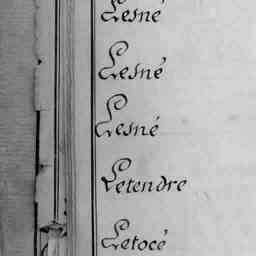 Lesné
Lesné
Lesné
Letendre
Letocé